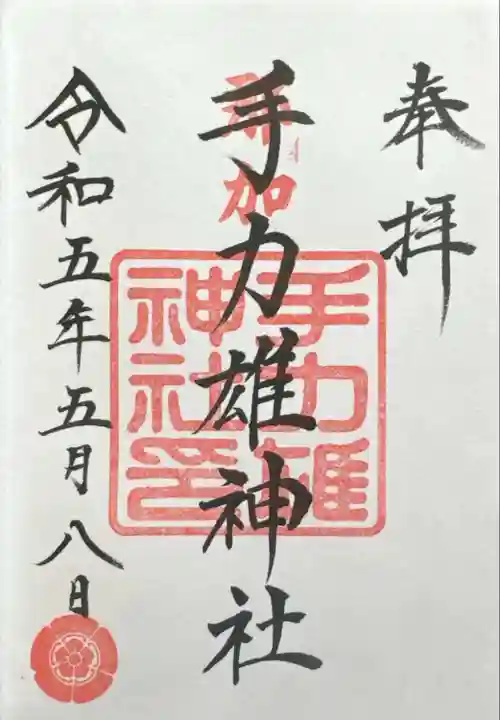 奉拝
加
手力雄神社
手力雄
神社印
令和五年五月八日